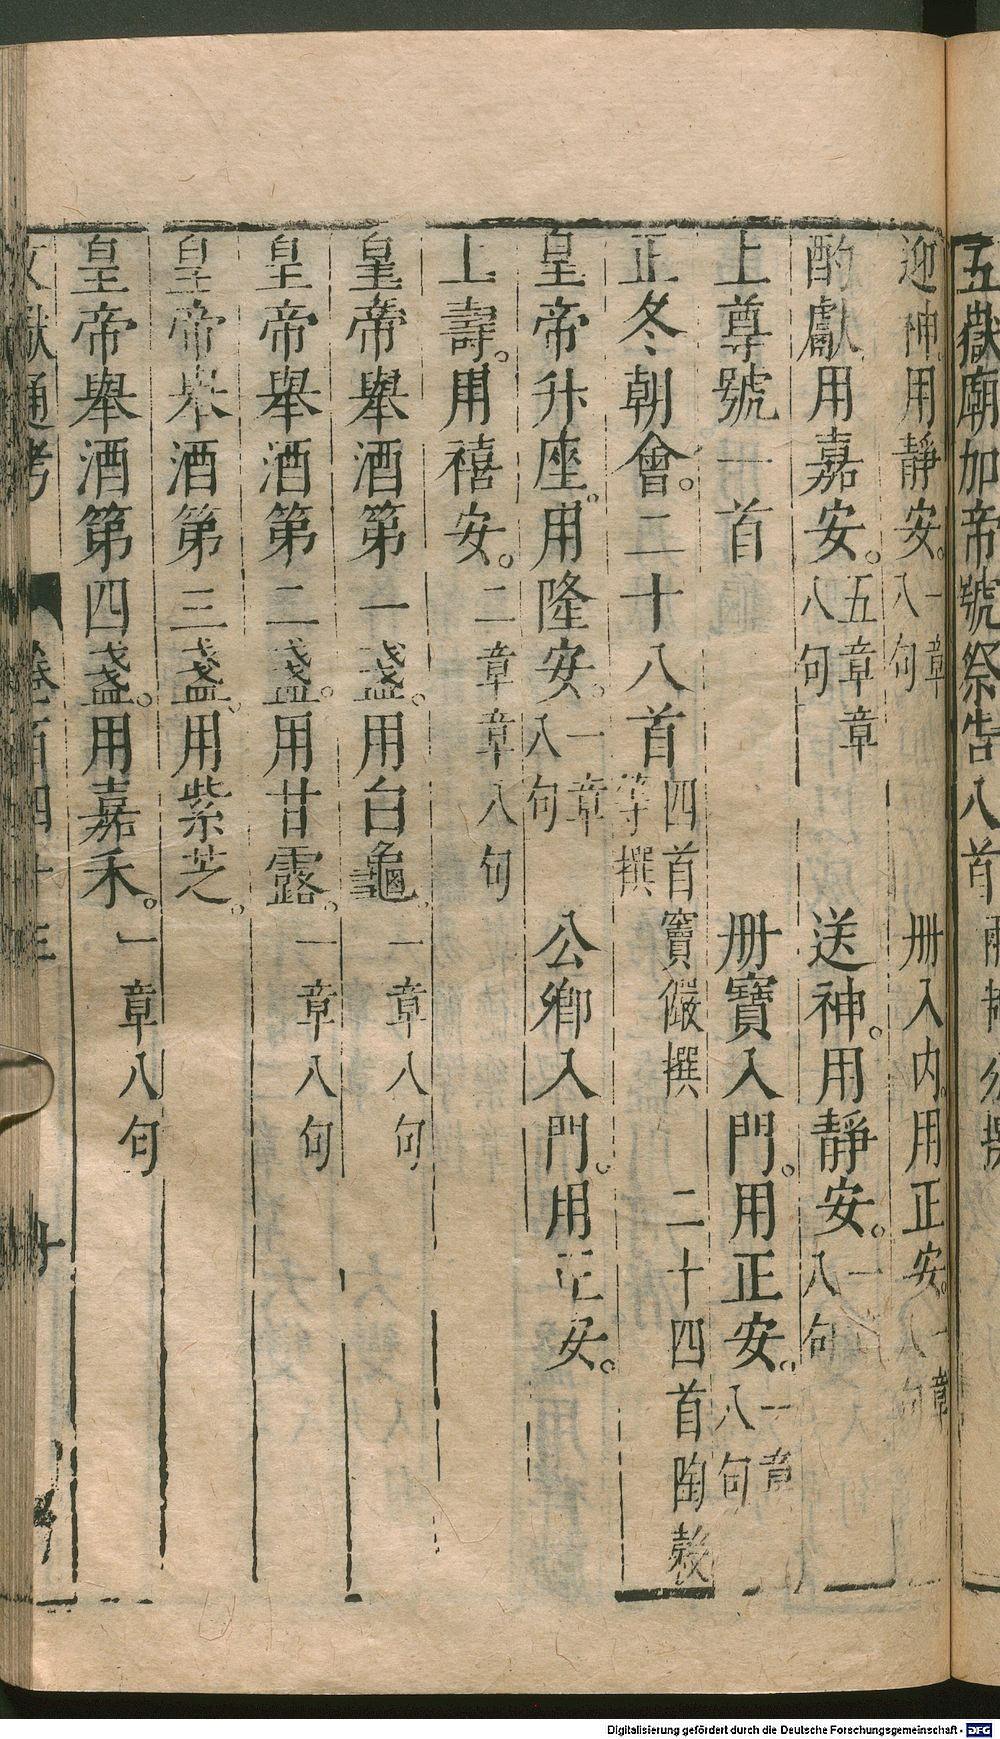 五嶽廟加帝號祭告八首
迎神用靜安。一章八句 册入内用正安。一章八句
酌獻用嘉安。五章章八句 送神。用靜安。一八句
上尊號一首 册寶入門。用正安。一章八句
正冬朝會。二十八首 四首竇儼撰 二十四首陶穀等撰
皇帝升座。用隆安。一章八句 公卿入門。用正安。
上壽。用禧安。二章章八句
皇帝舉酒第一盞。用白龜。一章八句
皇帝舉酒第二盞。用甘露。一章八句
皇帝舉酒第三盞。用紫芝。
皇帝舉酒第四盞。用嘉禾。一章八句
文獻通考 卷百四十三
Digitalisierung gefördert durch die Deutsche Forschungsgemeinschaft - DFG